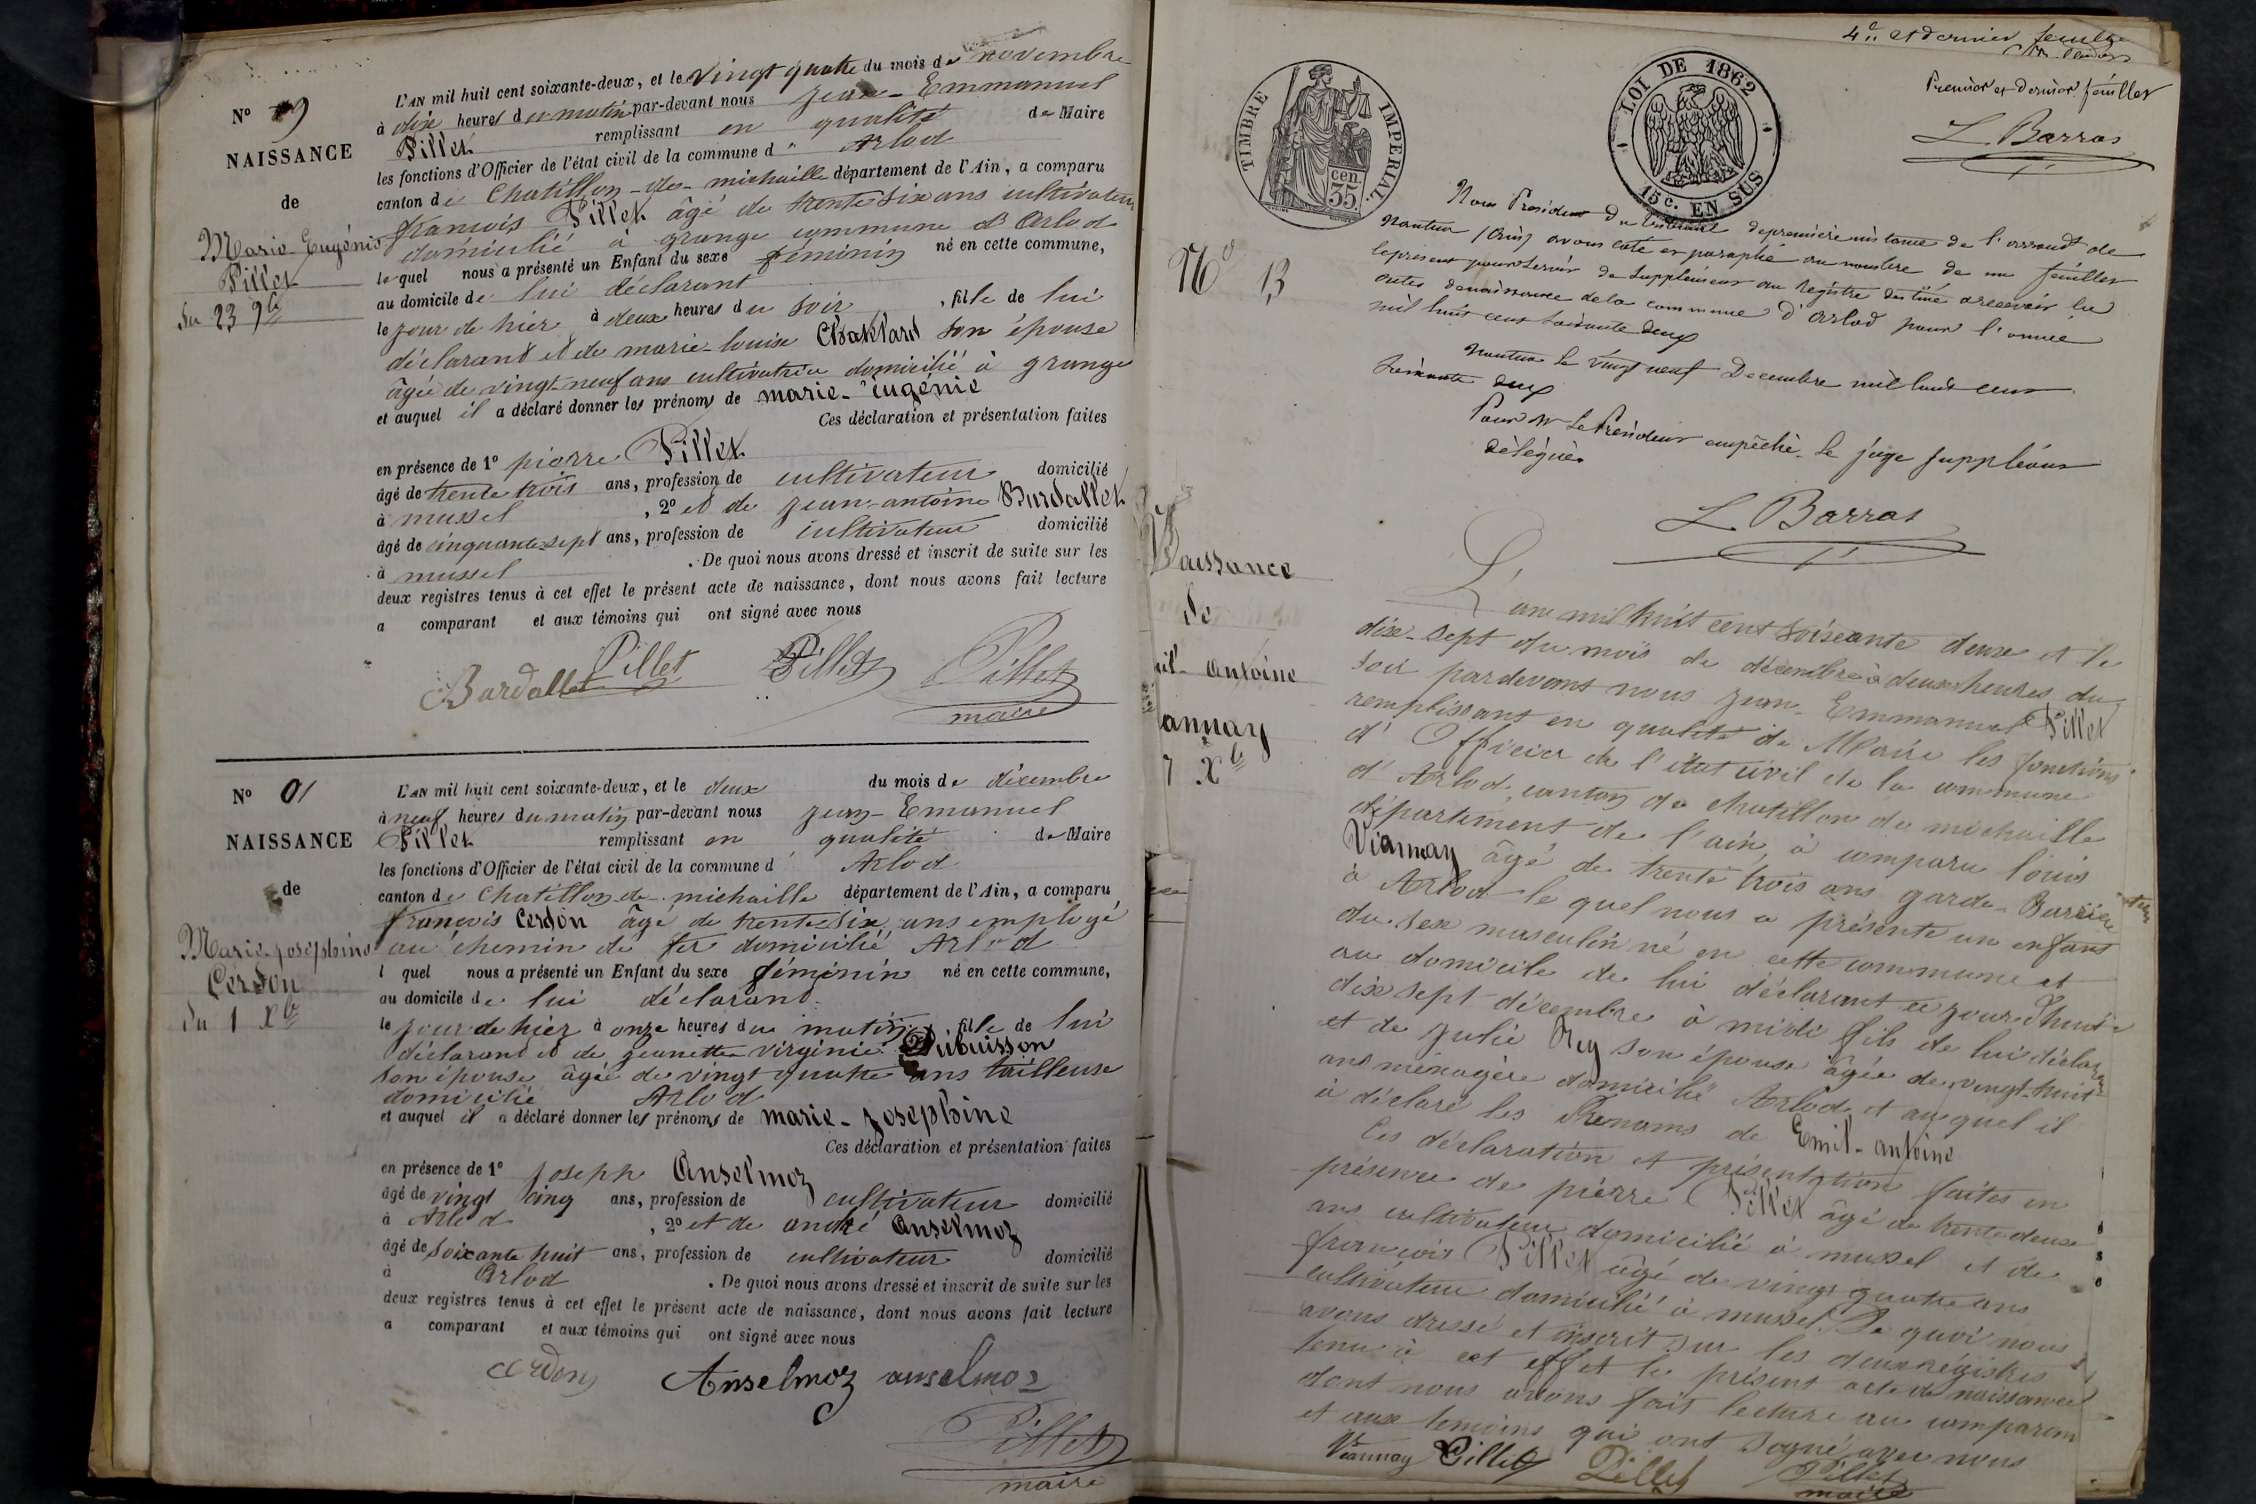 No 9
NAISSANCE
de
Marie Eugénie
Pillet
du 23 9bre
L'AN mil huit cent soixante-deux, et le vingt quatre du mois de novembre
à dix heures du matin par-devant nous Jean-Emmanuel
Pillet remplissant en qualité de Maire
les fonctions d'Officier de l'état civil de la commune d'' Arlod
canton de Chatillon-de-michaille département de l'Ain, a comparu
francois Pillet âgé de trente six ans cultivateur
domicilié à grange commune d'Arlod
lequel nous a présenté un Enfant du sexe féminin né en cette commune,
au domicile de lui déclarant
le jour de hier à deux heures du soir, fille de lui
déclarant et de marie-louise son épouse
âgée de vingt-neuf ans cultivatrice domicilié à grange
et auquel il a déclaré donner les prénoms de marie-Eugénie
Ces déclaration et présentation faites
en présence de 1o pierre Pillet
âgé de trente trois ans, profession de cultivateur domicilié
à mussel, 2o et de jean-antoine Bardallet
âgé de cinquante sept ans, profession de cultivateur domicilié
à mussel. De quoi nous avons dressé et inscrit de suite sur les
deux registres tenus à cet effet le présent acte de naissance, dont nous avons fait lecture
a comparant et aux témoins qui ont signé avec nous
Bardallet Pillet Pillet Pillet
maire
No 01
NAISSANCE
de
Marie-josephine
Cerdon
du 1 Xbre
L'AN mil huit cent soixante-deux, et le deux du mois de décembre
à neuf heures du matin par-devant nous Jean-Emanuel
Pillet remplissant en qualité de Maire
les fonctions d'Officier de l'état civil de la commune d' Arlod
canton de Chatillon-de-michaille département de l'Ain, a comparu
françois Cerdon âgé de trente six ans employé
au chemin de fer domicilié Arlod
l quel nous a présenté un Enfant du sexe féminin né en cette commune,
au domicile de lui déclarant.
le jour de hier à onze heures du matin, fille de lui
déclarant et de jeanette virginie Dubuisson
son épouse âgée de vingt quatre ans tailleuse
domicilié Arlod
et auquel il a déclaré donner les prénoms de marie-josephine
Ces déclaration et présentation faites
en présence de 1o joseph Anselmoz
âgé de vingt cinq ans, profession de cultivateur domicilié
à Arlod, 2o et de andré Anselmoz
âgé de soixante huit ans, profession de cultivateur domicilié
à Arlod. De quoi nous avons dressé et inscrit de suite sur les
deux registres tenus à cet effet le présent acte de naissance, dont nous avons fait lecture
a comparant et aux témoins qui ont signé avec nous
Cerdon Anselmoz anselmoz
Pillet
maire
4e et dernier feuillet
Premier et dernier feuillet
L. Barras
TIMBRE IMPERIAL
35 cen.
LOI DE 1862
15c. EN SUS
Nous President du tribunal de premiere instance de l'arrondt de
Nantua (Ain) avons coté et paraphé au nombre de un feuillet
le present pour servir de supplément au Registre destiné a recevoir les
actes de naissance de la commune d'Arlod pour l'année
mil huit cent soixante deux
Nantua le vingt neuf Decembre mil huit cent
soixante deux
Pour Mr le President empêché, le juge suppléant
délégué
L. Barras
No 13
Naissance
de
il-antoine
annay
7 Xbre
L'an mil huit cent soixante deux et le
dix-sept du mois de décembre à deux heures du
soir pardevant nous jean-Emmanuel Pillet
remplissant en qualité de Maire les fonctions
d'Officier de l'état civil de la commune
d'Arlod, canton de chatillon de michaille
département de l'ain, à comparu louis
Viannay âgé de trente trois ans garde-Barrière
à Arlod le quel nous a présenté un enfant
du sex masculin né en cette commune et
au domicile de lui déclarant ce jourd'hui
dix sept décembre à midi fils de lui déclarant
et de julie Rey son épouse âgée de vingt-huit
ans ménagère domicilié Arlod et auquel il
à déclaré les Prenoms de Emil-antoine
Ces déclaration et présentation faites en
présence de pierre Pillet âgé de trente deux
ans cultivateur domicilié à mussel et de
françois Pillet âgé de vingt quatre ans
cultivateur domicilié à mussel. De quoi nous
avons dressé et inscrit sur les deux régistres
tenu à cet effet le présent acte de naissance
dont nous avons fait lecture au comparant
et aux temoins qui ont signé avec nous
Viannay Pillet Pillet Pillet
maire